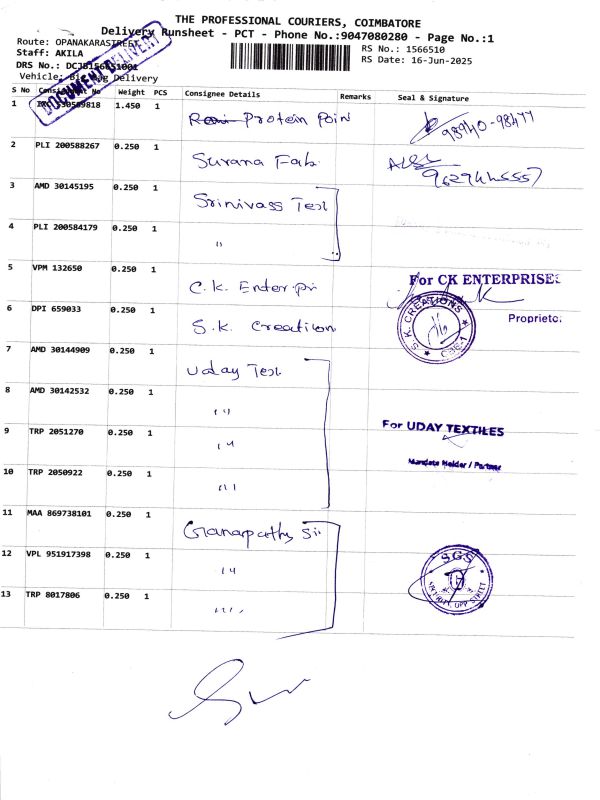 THE PROFESSIONAL COURIERS, COIMBATORE
Delivery Runsheet - PCT - Phone No.:9047080280 - Page No.:1
Route: OPANAKARASTREET
RS No.: 1566510
Staff: AKILA
RS Date: 16-Jun-2025
DRS No.:
Vehicle: Big Bag Delivery
DOCUMENT DELIVERY
S No Consignment No Weight PCS Consignee Details Remarks Seal & Signature
1 1.450 1 Protein Poin 98940-98477
2 PLI 200588267 0.250 1 Surana Fab 9629445557
3 AMD 30145195 0.250 1 Srinivass Text
4 PLI 200584179 0.250 1 "
5 VPM 132650 0.250 1 C.K. Enterpri
For CK ENTERPRISES
6 DPI 659033 0.250 1 S.K. Creation
S.K. CREATIONS CBE-1
Proprietor
7 AMD 30144909 0.250 1 Uday Text
8 AMD 30142532 0.250 1 "
9 TRP 2051270 0.250 1 "
For UDAY TEXTILES
10 TRP 2050922 0.250 1 "
Mandate Holder / Partner
11 MAA 869738101 0.250 1 Ganapathy Sii
12 VPL 951917398 0.250 1 "
SGS
13 TRP 8017806 0.250 1 "